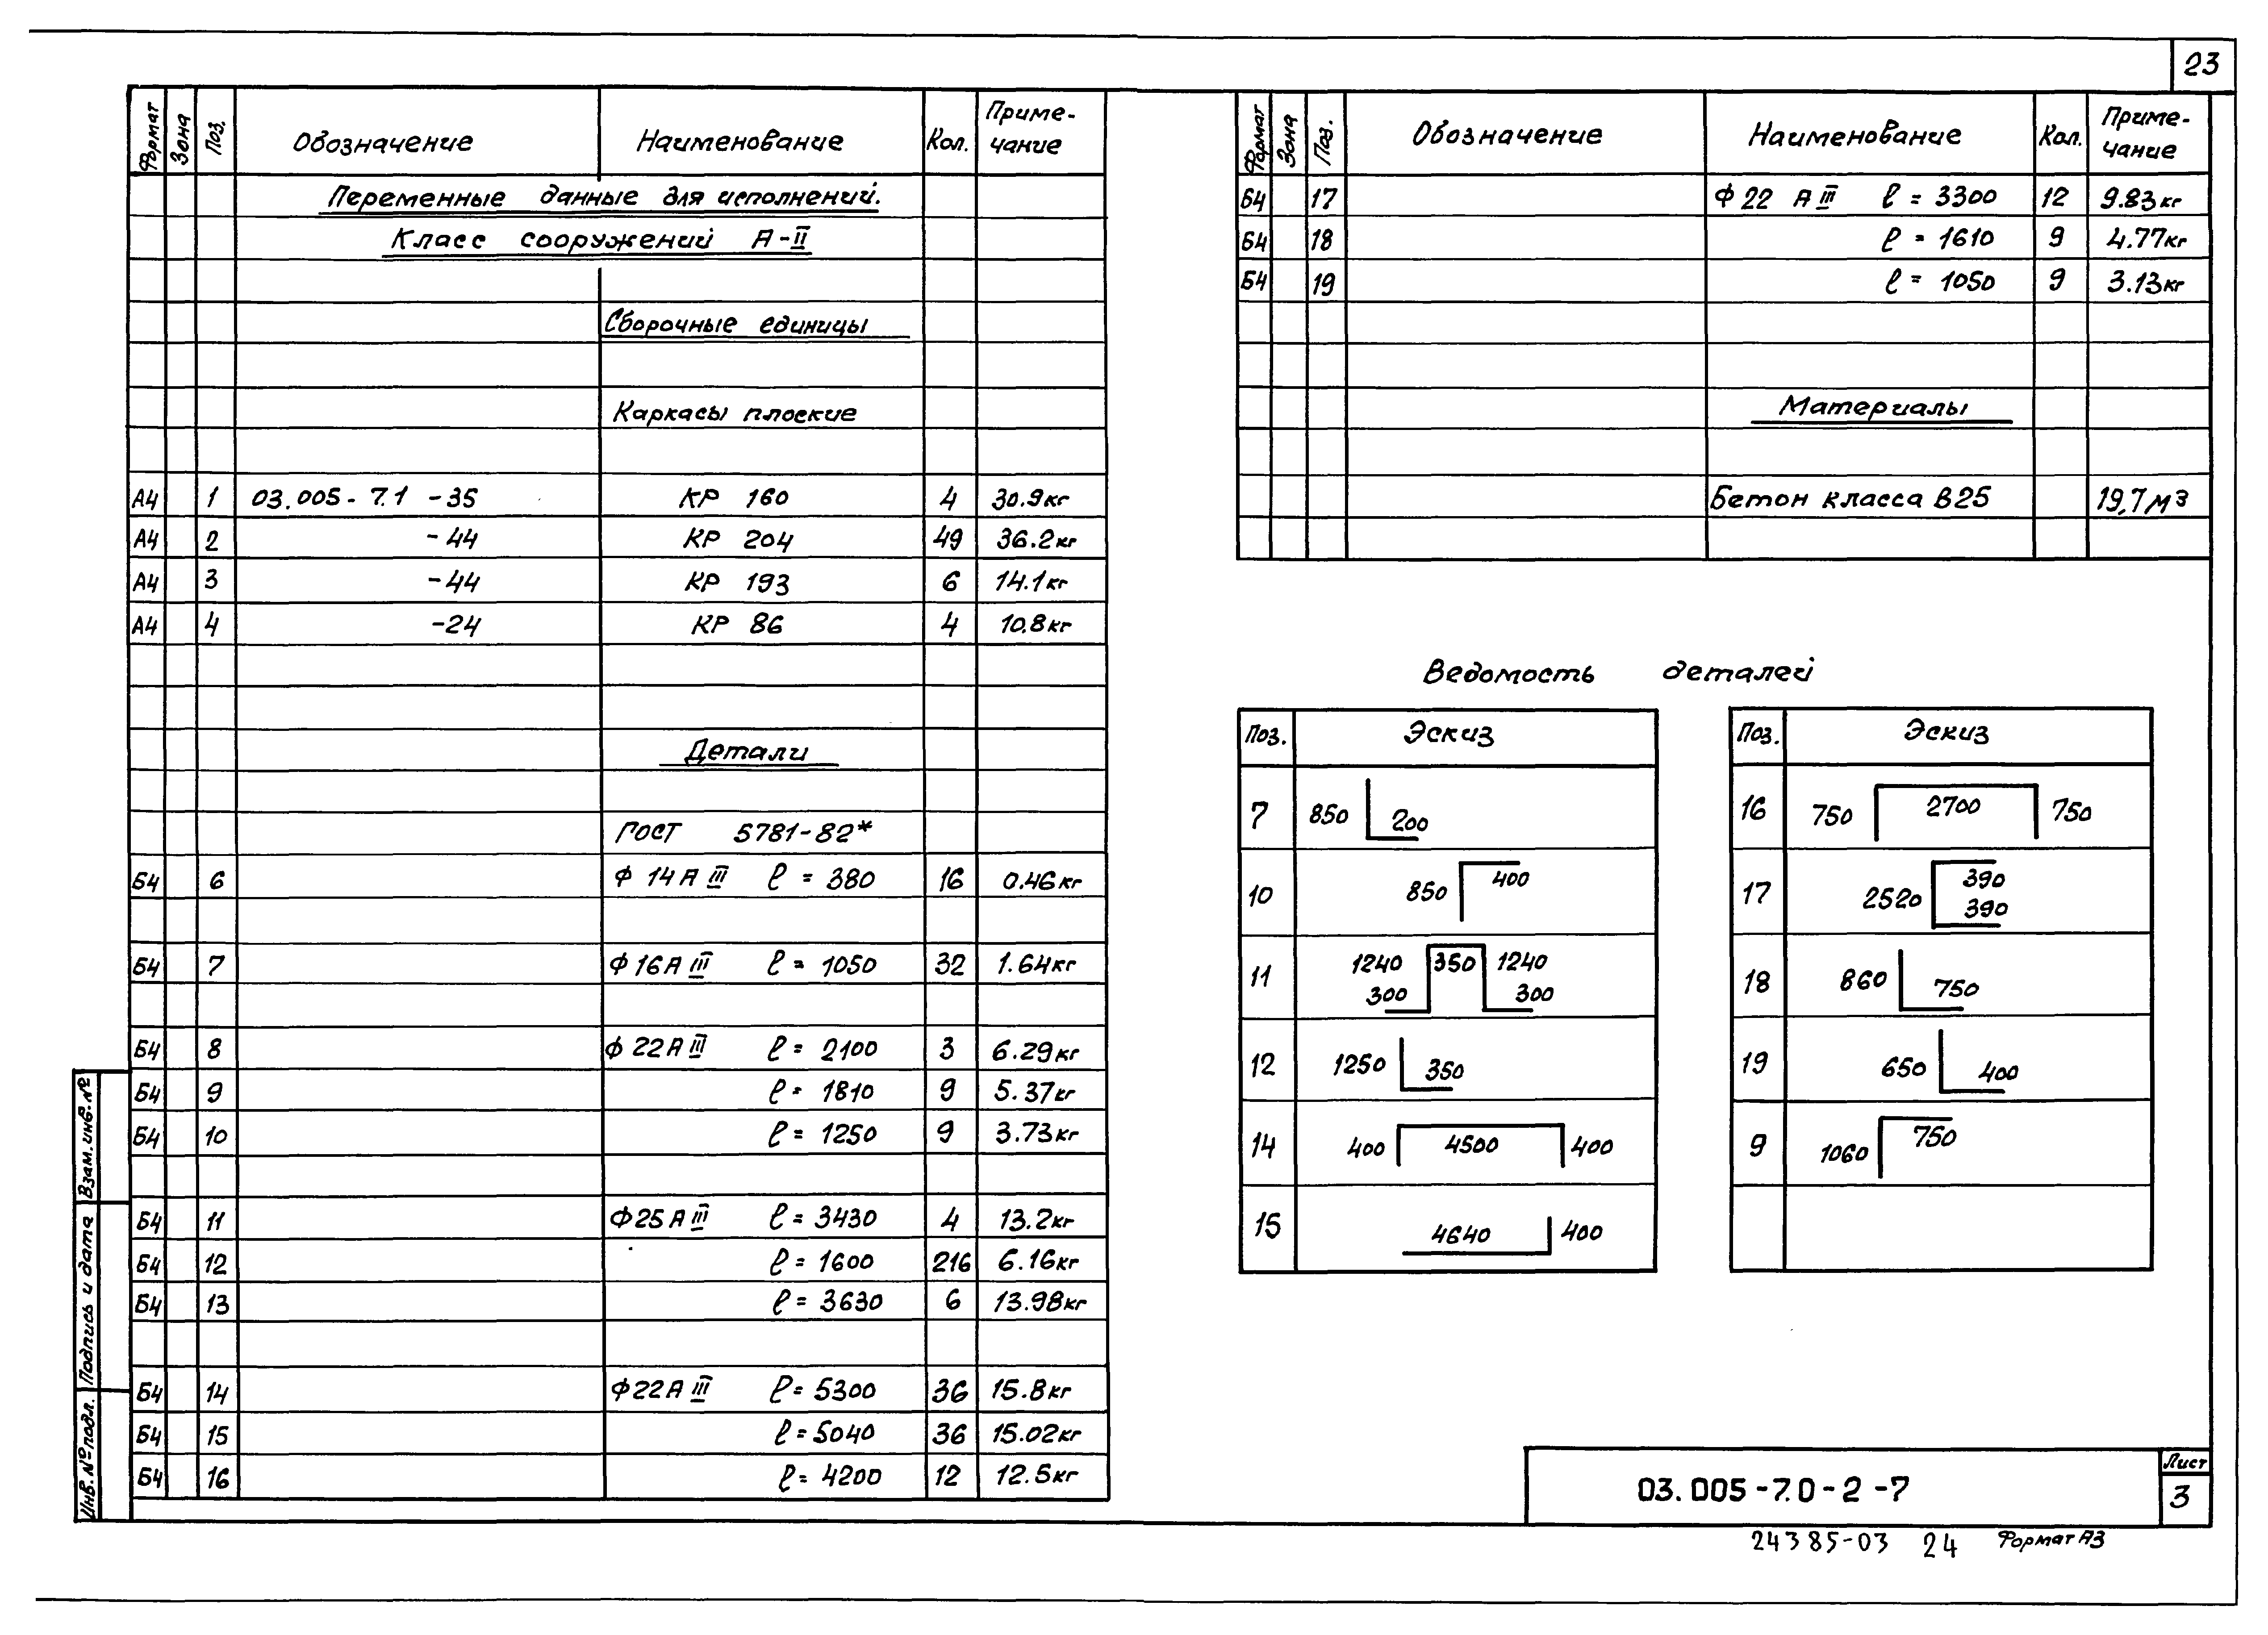 23
Формат Зона Поз. Обозначение Наименование Кол. Приме-чание
Переменные данные для исполнений.
Класс сооружений А-II
Сборочные единицы
Каркасы плоские
А4 1 03.005-7.1 -35 КР 160 4 30.9кг
А4 2 -44 КР 204 49 36.2кг
А4 3 -44 КР 193 6 14.1кг
А4 4 -24 КР 86 4 10.8кг
Детали
ГОСТ 5781-82*
Б4 6 Ф 14 А III ℓ = 380 16 0.46кг
Б4 7 Ф 16 А III ℓ = 1050 32 1.64кг
Б4 8 Ф 22 А III ℓ = 2100 3 6.29кг
Б4 9 ℓ = 1810 9 5.37кг
Б4 10 ℓ = 1250 9 3.73кг
Б4 11 Ф 25 А III ℓ = 3430 4 13.2кг
Б4 12 ℓ = 1600 216 6.16кг
Б4 13 ℓ = 3630 6 13.98кг
Б4 14 Ф 22 А III ℓ = 5300 36 15.8кг
Б4 15 ℓ = 5040 36 15.02кг
Б4 16 ℓ = 4200 12 12.5кг
Формат Зона Поз. Обозначение Наименование Кол. Приме-чание
Б4 17 Ф 22 А III ℓ = 3300 12 9.83кг
Б4 18 ℓ = 1610 9 4.77кг
Б4 19 ℓ = 1050 9 3.13кг
Материалы
Бетон класса В25 19,7 м3
Ведомость деталей
Поз. Эскиз
7 850 200
10 850 400
11 1240 350 1240
300 300
12 1250 350
14 400 4500 400
15 4640 400
Поз. Эскиз
16 750 2700 750
17 2520 390
390
18 860 750
19 650 400
9 1060 750
Взам. инв. №
Подпись и дата
Инв. № подл.
03.005-7.0-2-7
Лист
3
24385-03 24 Формат А3